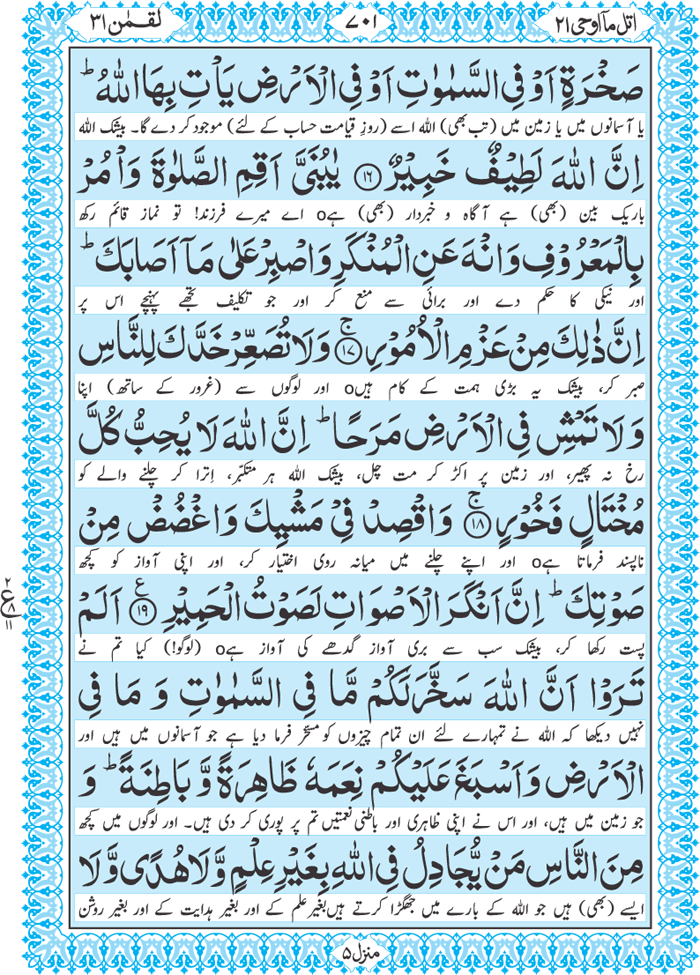 اتل ماۤ اوحی ۲۱
۷۰۱
لقمٰن ۳۱
صَخْرَةٍ اَوْ فِی السَّمٰوٰتِ اَوْ فِی الْاَرْضِ یَاْتِ بِهَا اللّٰهُ ؕ
یا آسمانوں میں یا زمین میں (تب بھی) اللہ اسے (روزِ قیامت حساب کے لئے) موجود کر دے گا۔ بیشک اللہ
اِنَّ اللّٰهَ لَطِیْفٌ خَبِیْرٌ ﴿۱۶﴾ یٰبُنَیَّ اَقِمِ الصَّلٰوةَ وَاْمُرْ
باریک بین (بھی) ہے آگاہ و خبردار (بھی) ہےo اے میرے فرزند! تو نماز قائم رکھ
بِالْمَعْرُوْفِ وَانْهَ عَنِ الْمُنْكَرِ وَاصْبِرْ عَلٰی مَاۤ اَصَابَكَ ؕ
اور نیکی کا حکم دے اور برائی سے منع کر اور جو تکلیف تجھے پہنچے اس پر
اِنَّ ذٰلِكَ مِنْ عَزْمِ الْاُمُوْرِ ﴿ۚ۱۷﴾ وَلَا تُصَعِّرْ خَدَّكَ لِلنَّاسِ
صبر کر، بیشک یہ بڑی ہمت کے کام ہیںo اور لوگوں سے (غرور کے ساتھ) اپنا
وَلَا تَمْشِ فِی الْاَرْضِ مَرَحًا ؕ اِنَّ اللّٰهَ لَا یُحِبُّ كُلَّ
رخ نہ پھیر، اور زمین پر اکڑ کر مت چل، بیشک اللہ ہر متکبّر، اِترا کر چلنے والے کو
مُخْتَالٍ فَخُوْرٍ ﴿ۚ۱۸﴾ وَاقْصِدْ فِیْ مَشْیِكَ وَاغْضُضْ مِنْ
ناپسند فرماتا ہےo اور اپنے چلنے میں میانہ روی اختیار کر، اور اپنی آواز کو کچھ
صَوْتِكَ ؕ اِنَّ اَنْكَرَ الْاَصْوَاتِ لَصَوْتُ الْحَمِیْرِ ﴿۱۹﴾ع اَلَمْ
۲ ع ۱۱
پست رکھا کر، بیشک سب سے بری آواز گدھے کی آواز ہےo (لوگو!) کیا تم نے
تَرَوْا اَنَّ اللّٰهَ سَخَّرَ لَكُمْ مَّا فِی السَّمٰوٰتِ وَ مَا فِی
نہیں دیکھا کہ اللہ نے تمہارے لئے ان تمام چیزوں کو مسخّر فرما دیا ہے جو آسمانوں میں ہیں اور
الْاَرْضِ وَاَسْبَغَ عَلَیْكُمْ نِعَمَهٗ ظَاهِرَةً وَّ بَاطِنَةً ؕ وَ
جو زمین میں ہیں، اور اس نے اپنی ظاہری اور باطنی نعمتیں تم پر پوری کر دی ہیں۔ اور لوگوں میں کچھ
مِنَ النَّاسِ مَنْ یُّجَادِلُ فِی اللّٰهِ بِغَیْرِ عِلْمٍ وَّلَا هُدًی وَّلَا
ایسے (بھی) ہیں جو اللہ کے بارے میں جھگڑا کرتے ہیں بغیر علم کے اور بغیر ہدایت کے اور بغیر روشن
منزل ۵